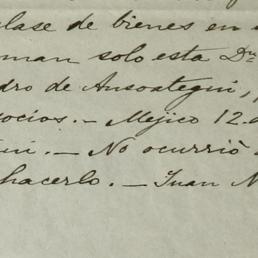 clase de bienes en
man solo esta Dn
dro de Ansoategui,
ocios. — Mejico 12. d
ui. — No ocurrió
hacerlo. — Juan M